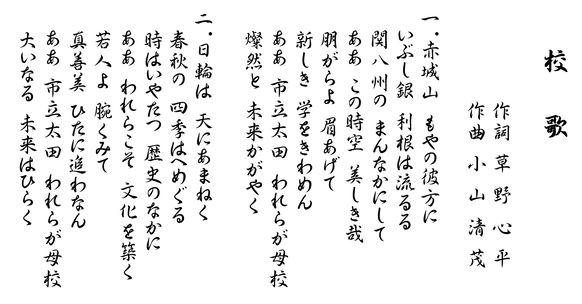 校歌
作詞 草野心平
作曲 小山清茂
一．赤城山 もやの彼方に
いぶし銀 利根は流るる
関八州の まんなかにして
ああ この時空 美しき哉
朋がらよ 眉あげて
新しき 学をきわめん
ああ 市立太田 われらが母校
燦然と 未来かがやく
二．日輪は 天にあまねく
春秋の 四季はへめぐる
時はいやたつ 歴史のなかに
ああ われらこそ 文化を築く
若人よ 腕くみて
真善美 ひたに追わなん
ああ 市立太田 われらが母校
大いなる 未来はひらく